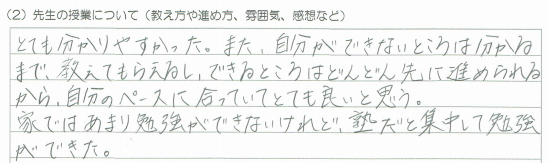 (2) 先生の授業について（教え方や進め方、雰囲気、感想など）
とても分かりやすかった。また、自分ができないところは分かる
まで、教えてもらえるし、できるところはどんどん先に進められる
から、自分のペースに合っていてとても良いと思う。
家ではあまり勉強ができないけれど、塾だと集中して勉強
ができた。